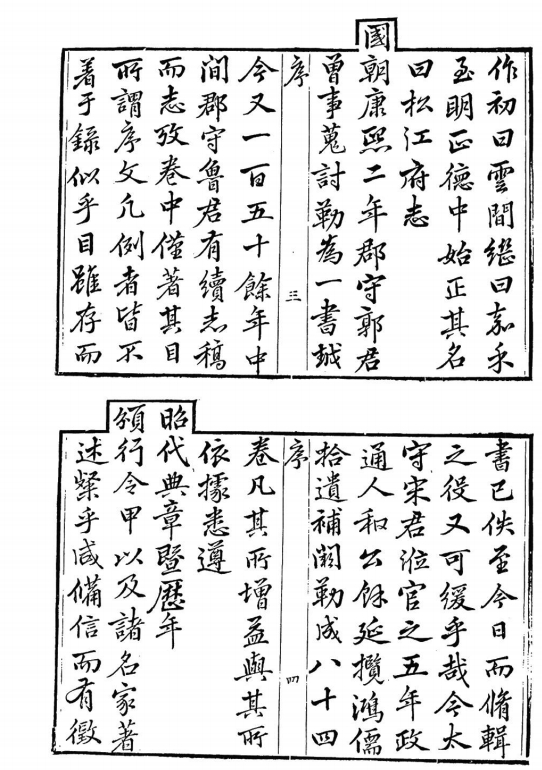 作初曰雲間繼曰嘉禾
至明正德中始正其名
曰松江府志
國朝康熙二年郡守郭君
曾事蒐討勒為一書越
序
三
今又一百五十餘年中
間郡守魯君有續志稿
而志攷卷中僅著其目
所謂序文凡例者皆不
著于錄似乎目雖存而
書已佚至今日而脩輯
之役又可緩乎哉今太
守宋君涖官之五年政
通人和公餘延攬鴻儒
拾遺補闕勒成八十四
序
四
卷凡其所增益與其所
依據悉遵
昭代典章暨歷年
頒行令甲以及諸名家著
述粲乎咸備信而有徵